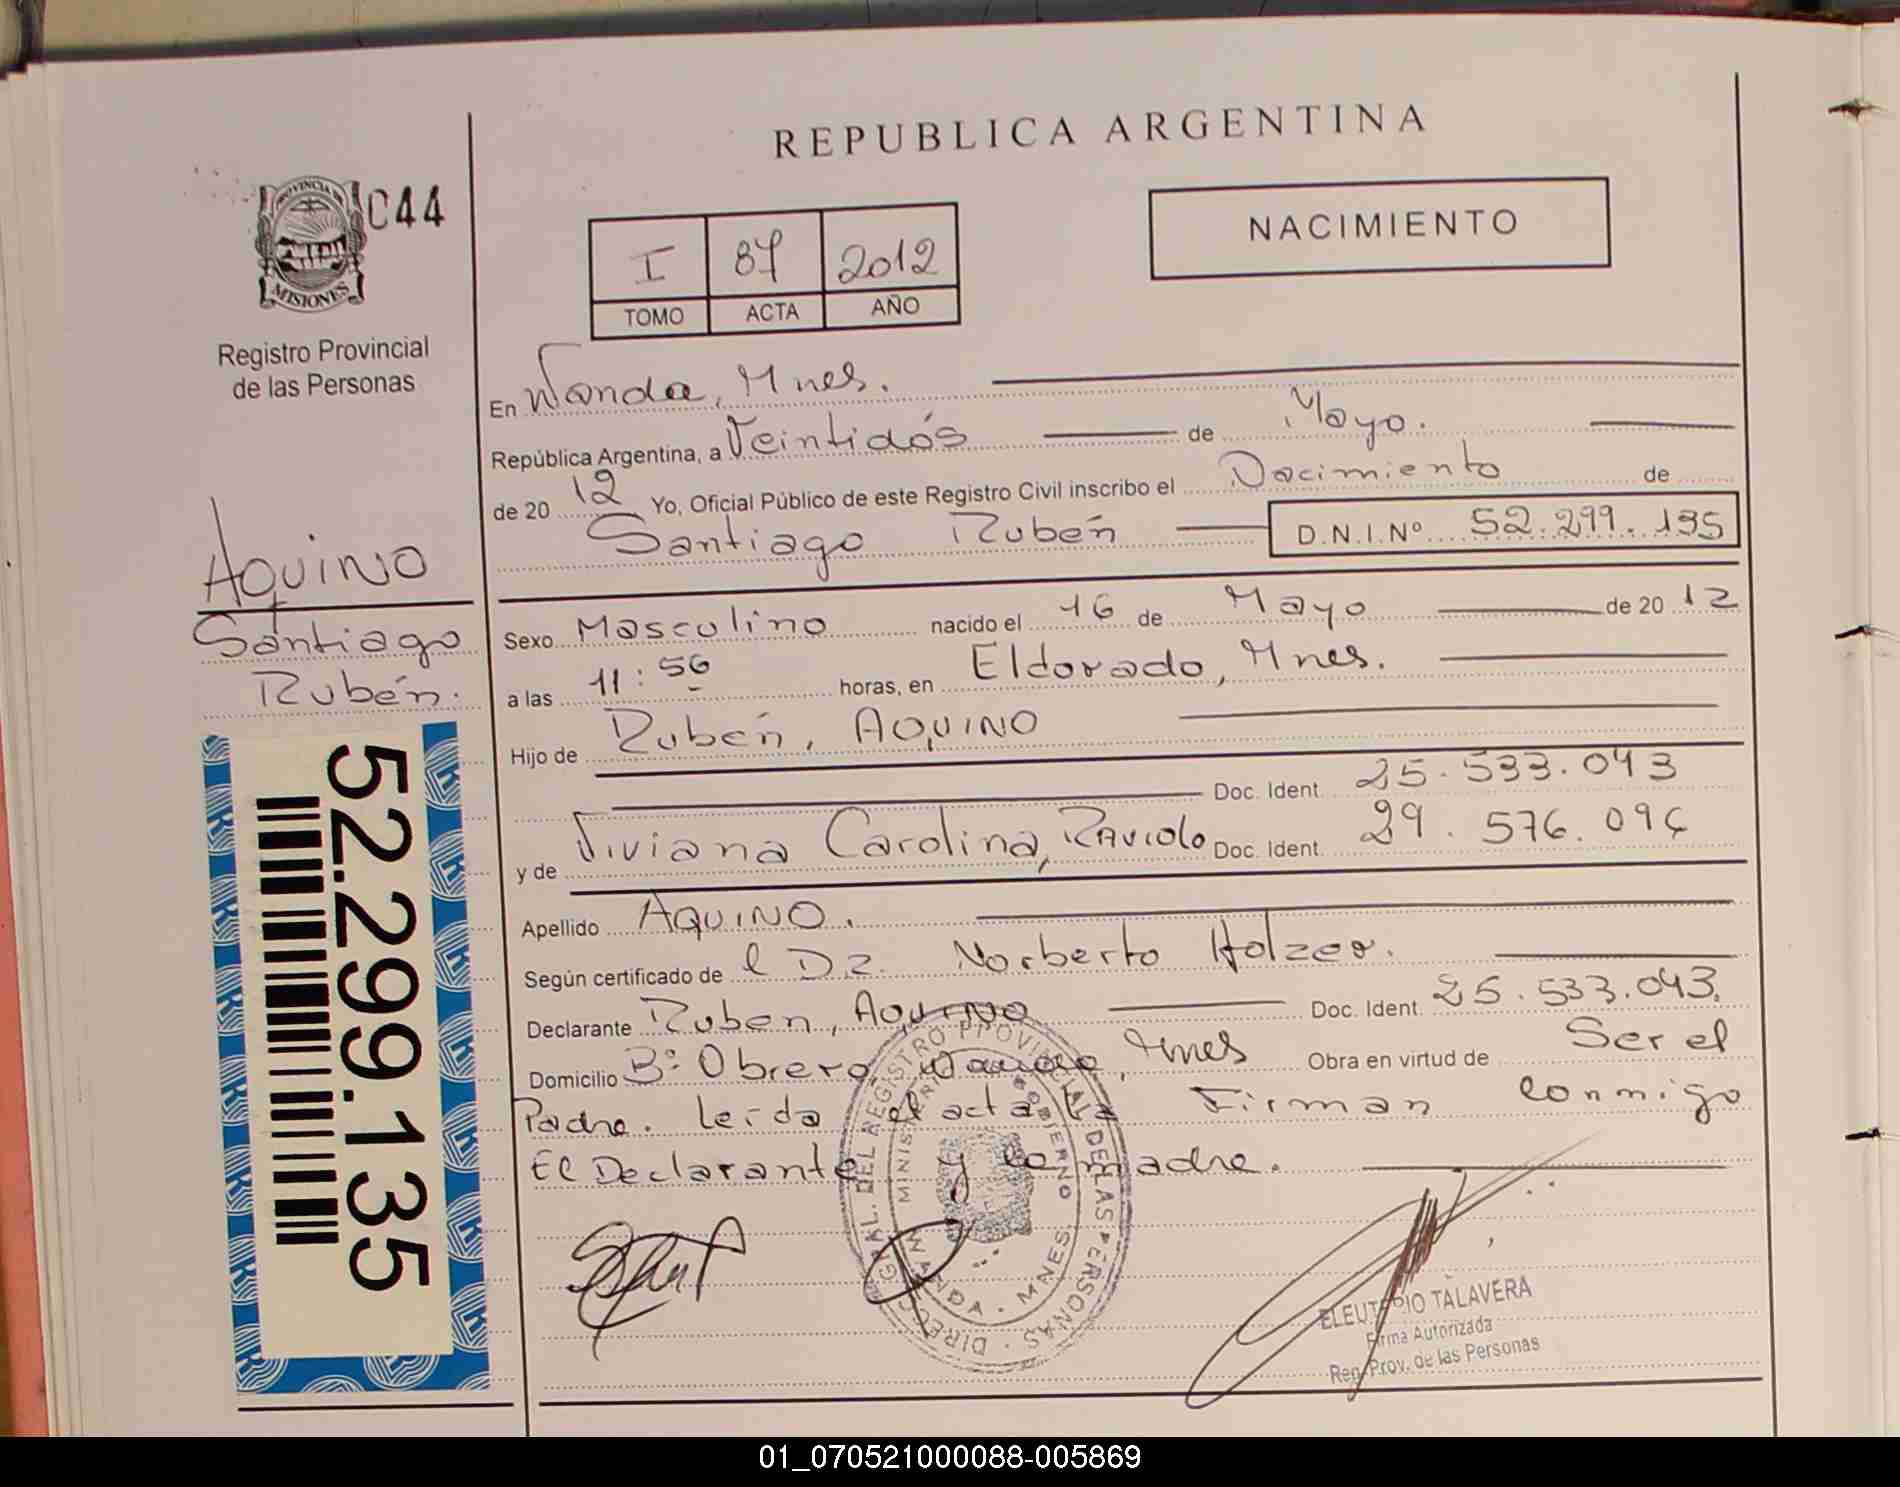 REPUBLICA ARGENTINA
PROVINCIA DE
MISIONES
C44
Registro Provincial
de las Personas
I 87 2012
TOMO ACTA AÑO
NACIMIENTO
En Wanda, Mnes.
República Argentina, a Veintidós de Mayo.
de 20 12 Yo, Oficial Público de este Registro Civil inscribo el Nacimiento de
Santiago Rubén D.N.I.Nº 52.299.135
AQUINO
Santiago
Rubén.
52.299.135
Sexo Masculino nacido el 16 de Mayo de 20 12
a las 11:56 horas, en Eldorado, Mnes.
Hijo de Rubén, AQUINO
Doc. Ident. 25.533.043
y de Viviana Carolina, RAVIOLO Doc. Ident. 29.576.096
Apellido AQUINO.
Según certificado de el Dr. Norberto Holzer.
Declarante Ruben, AQUINO Doc. Ident. 25.533.043.
Domicilio Bº Obrero, Wanda, Mnes Obra en virtud de Ser el
Padre. Leída el acta la Firman conmigo
El Declarante y la madre.
DIREC. GRAL. DEL REGISTRO PROVINCIAL DE LAS PERSONAS
MINISTERIO GOBIERNO
WANDA - MNES
ELEUTERIO TALAVERA
Firma Autorizada
Reg. Prov. de las Personas
01_070521000088-005869